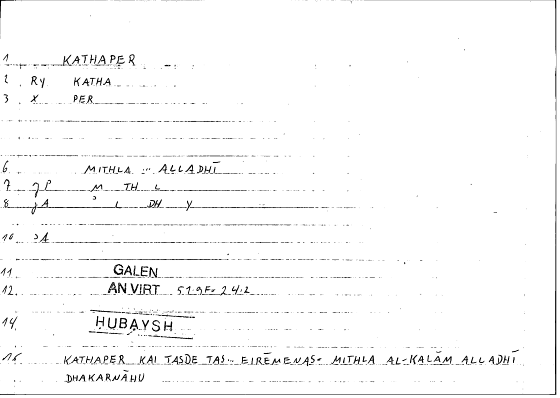 1 KATHAPER
2 Ry KATHA
3 X PER
6 MITHLA ·· ALLADHĪ
7 M TH L
8 ʾ L DH Y
10 ʾA
11 GALEN
12 AN VIRT
14 ḤUBAYSH
KATHAPER KAI TASDE TAS·· EIRĒMENAS· MITHLA AL-KALĀM ALLADHĪ
DHAKARNĀHU